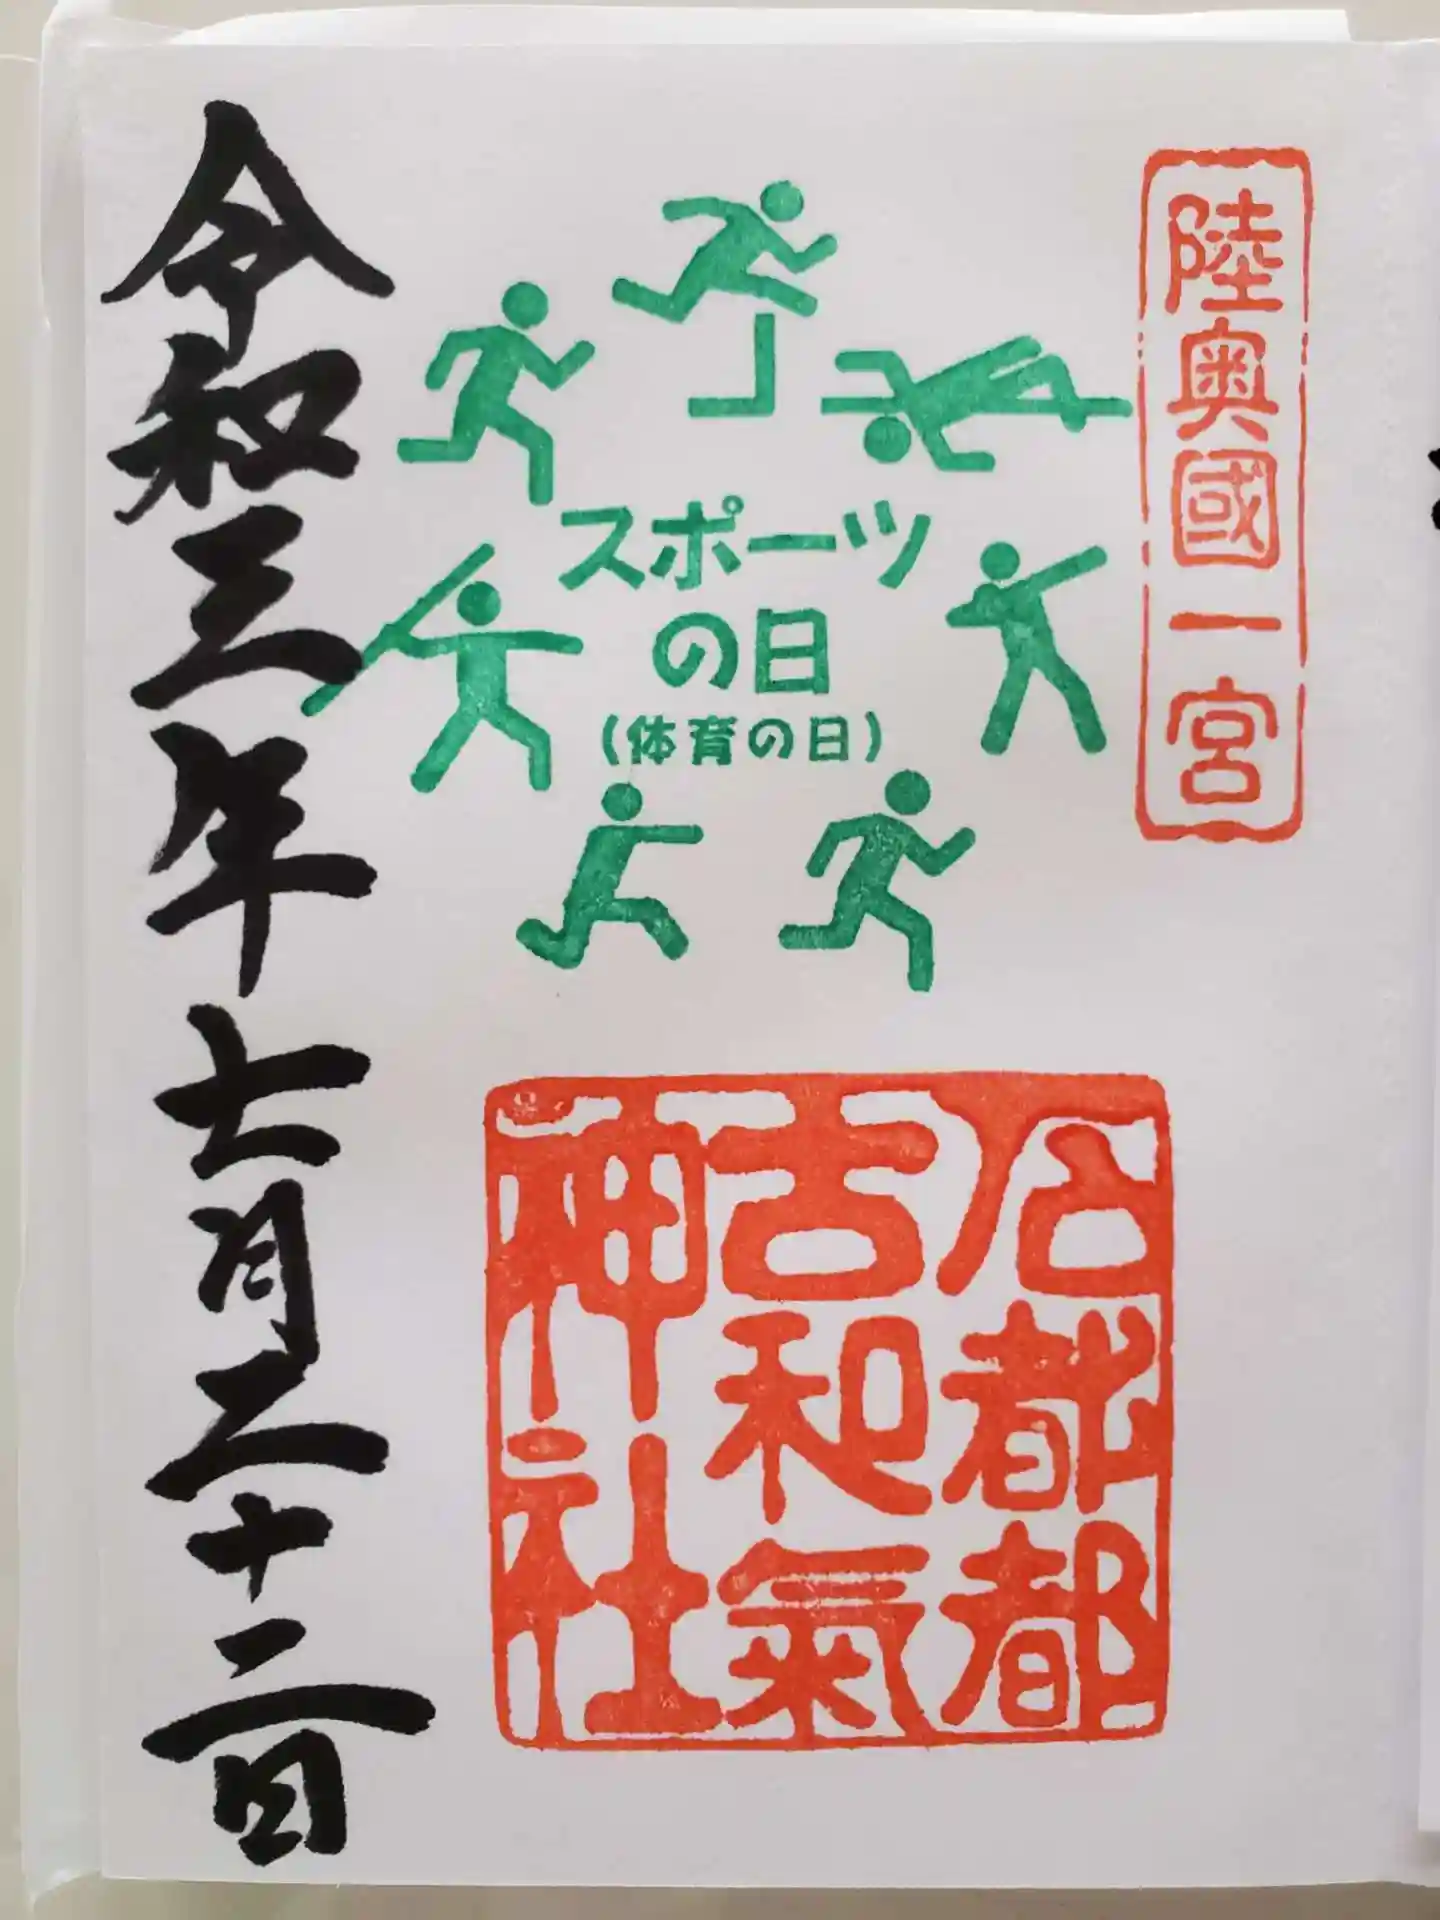 陸奥國一宮
スポーツ
の日
(体育の日)
石都都
古和氣
神社
令和三年七月二十二日